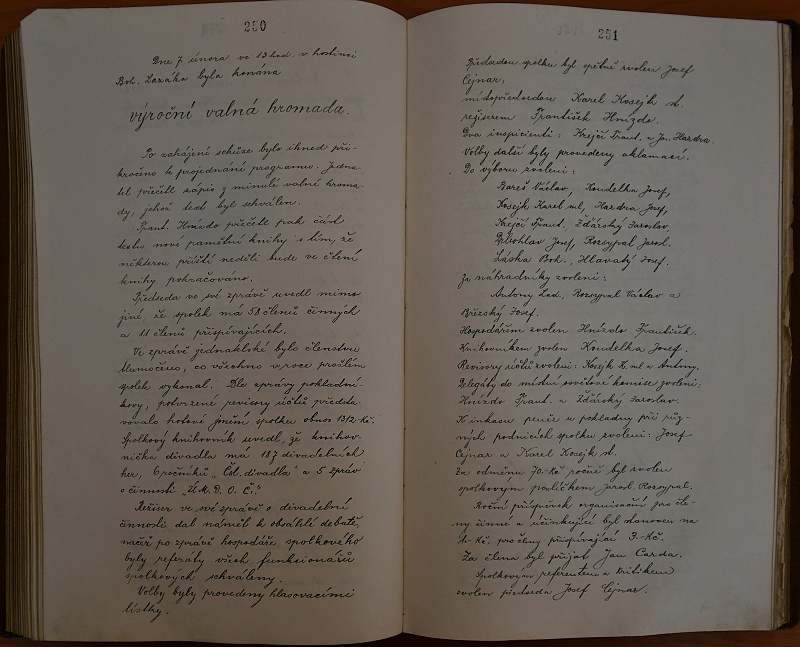 250
Dne 7 února ve 13 hod. v hostinci
Boh. Lazáka byla konána
výroční valná hromada.
Po zahájení schůze bylo ihned při-
kročeno k projednání programu. Jedna-
tel přečetl zápis z minulé valné hroma-
dy, jehož text byl schválen.
Frant. Hnízdo přečetl pak část
textu nové pamětní knihy s tím, že
některou příští neděli bude ve čtení
knihy pokračováno.
Předseda ve své zprávě uvedl mimo
jiné že spolek má 58 členů činných
a 11 členů přispívajících.
Ve zprávě jednatelské bylo členstvu
tlumočeno, co všechno v roce prošlém
spolek vykonal. Dle zprávy pokladní-
kovy, potvrzené revisory účtů předsta-
vovalo hotové jmění spolku obnos 1312 Kč.
Spolkový knihovník uvedl, že knihov-
nička divadla má 187 divadelních
her, 6 ročníků „Čsl. divadla" a 5 zpráv
o činnosti „Ú.M.D.O.Č."
Režiser ve své zprávě o divadelní
činnosti dal námět k obsáhlé debatě,
načež po zprávě hospodáře spolkového
byly referáty všech funkcionářů
spolkových schváleny.
Volby byly provedeny hlasovacími
lístky.
251
Předsedou spolku byl opětně zvolen Josef
Cejnar,
místopředsedou Karel Kosejk st.
režiserem František Hnízdo.
Dva inspicienti: Krejčí Frant. a Jos. Hazdra.
Volby další byly provedeny aklamací.
Do výboru zvoleni:
Bareš Václav, Koudelka Josef,
Kosejk Karel ml., Hazdra Josef,
Krejčí Frant., Žďárský Jaroslav,
Josef, Rozsypal Jarosl.
Láska Boh., Hlavatý Josef.
Za náhradníky zvoleni:
Antony Lad., Rozsypal Václav a
Březský Josef.
Hospodářem zvolen Hnízdo František.
Knihovníkem zvolen Koudelka Josef.
Revisory účtů zvoleni: Kosejk K. ml. a Antony.
Delegáty do místní osvětové komise zvoleni:
Hnízdo Frant. a Žďárský Jaroslav.
K inkasu peněz u pokladny při růz-
ných podnicích spolku zvoleni: Josef
Cejnar a Karel Kosejk st.
Za odměnu 70.-Kč ročně byl zvolen
spolkovým poslíčkem Jarosl. Rozsypal.
Roční příspěvek organisační pro čle-
ny činné a účinkující byl stanoven na
1.-Kč, pro členy přispívající 3.-Kč.
Za člena byl přijat Jan Carda.
Spolkovým referentem a kritikem
zvolen předseda Josef Cejnar.